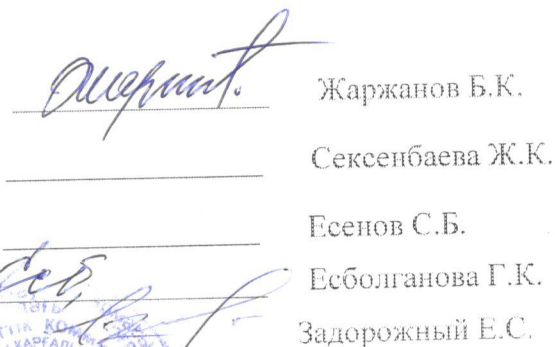 Жаржанов Б.К.
Сексенбаева Ж.К.
Есенов С.Б.
Есболганова Г.К.
Задорожный Е.С.